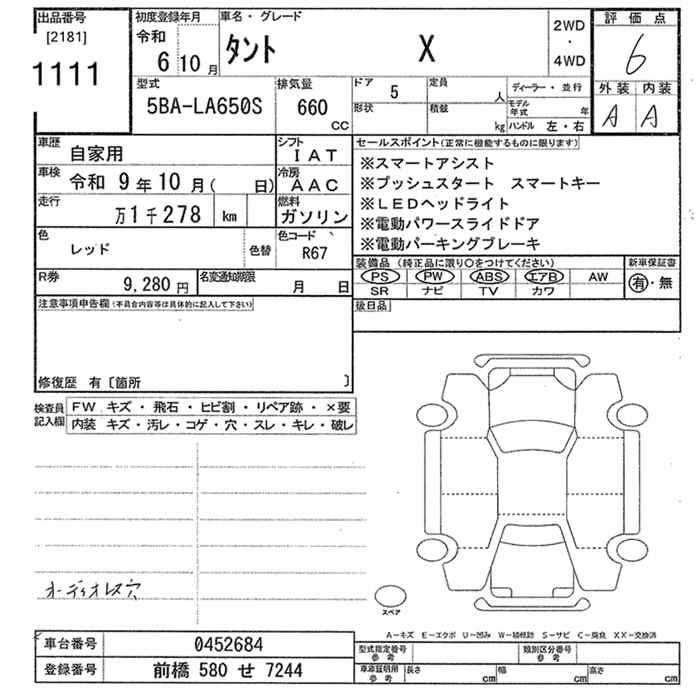 出品番号
[2181]
1111
初度登録年月
令和
6 10月
車名・グレード
タント X
2WD
・
4WD
評価点
6
外装 内装
A A
型式
5BA-LA650S
排気量
660
CC
ドア 5
定員 人
形状
積載 kg
ディーラー・並行
モデル年式 年
ハンドル 左・右
車歴 自家用
シフト IAT
車検 令和 9年10月( 日)
冷房 AAC
走行 万1千278 km
燃料 ガソリン
色 レッド
色替
色コード R67
R券 9,280円
名変通知期限 月 日
セールスポイント(正常に機能するものに限ります)
※スマートアシスト
※プッシュスタート スマートキー
※LEDヘッドライト
※電動パワースライドドア
※電動パーキングブレーキ
装備品(純正品に限り○をつけてください)
PS PW ABS エアB AW
SR ナビ TV カワ
新車保証書
有・無
後日品
注意事項申告欄(不具合内容等は具体的に記入して下さい)
修復歴 有〔箇所 〕
検査員記入欄
FW キズ・飛石・ヒビ割・リペア跡・×要
内装 キズ・汚レ・コゲ・穴・スレ・キレ・破レ
オーディオレス穴
スペア
A-キズ E-エクボ U-凹み W-補修跡 S-サビ C-腐食 XX-交換済
車台番号 0452684
登録番号 前橋 580 せ 7244
型式指定番号参考
類別区分番号参考
車庫証明用参考
長さ cm 幅 cm 高さ cm